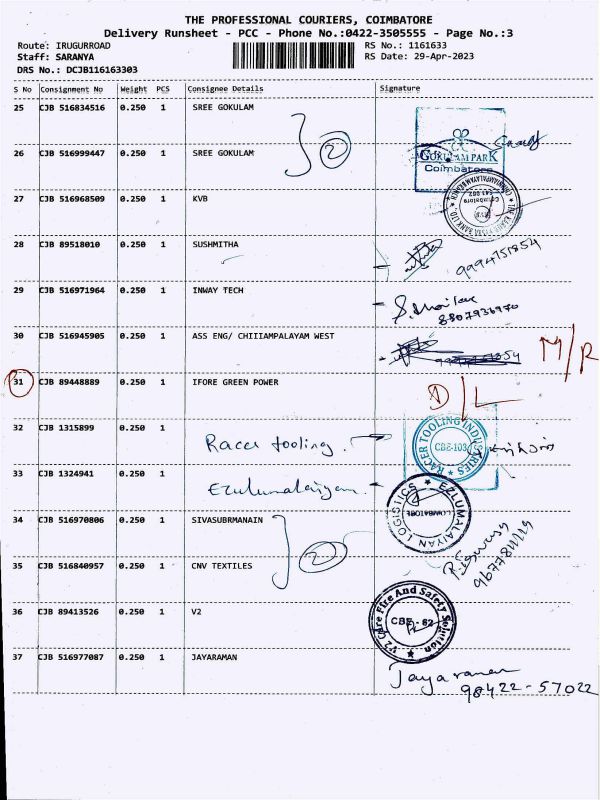 THE PROFESSIONAL COURIERS, COIMBATORE
Delivery Runsheet - PCC - Phone No.:0422-3505555 - Page No.:3
Route: IRUGURROAD RS No.: 1161633
Staff: SARANYA RS Date: 29-Apr-2023
DRS No.: DCJB116163303
S No Consignment No Weight PCS Consignee Details Signature
25 CJB 516834516 0.250 1 SREE GOKULAM
2
GOKULAM PARK
Coimbatore
26 CJB 516999447 0.250 1 SREE GOKULAM
27 CJB 516968509 0.250 1 KVB
28 CJB 89518010 0.250 1 SUSHMITHA
9994751854
29 CJB 516971964 0.250 1 INWAY TECH
8807936970
30 CJB 516945905 0.250 1 ASS ENG/ CHIIIAMPALAYAM WEST
M/R
31 CJB 89448889 0.250 1 IFORE GREEN POWER
D/L
32 CJB 1315899 0.250 1
Racer tooling.
RACER TOOLING INDUSTRIES
CBE-103
33 CJB 1324941 0.250 1
Ezulumalaiyan
EZLUMALAIYAN LOGISTICS
COIMBATORE
34 CJB 516970806 0.250 1 SIVASUBRMANAIN
2
35 CJB 516840957 0.250 1 CNV TEXTILES
36 CJB 89413526 0.250 1 V2
V2 Care Fire And Safety Solution
CBE - 62
37 CJB 516977087 0.250 1 JAYARAMAN
Jayaraman
98422-57022